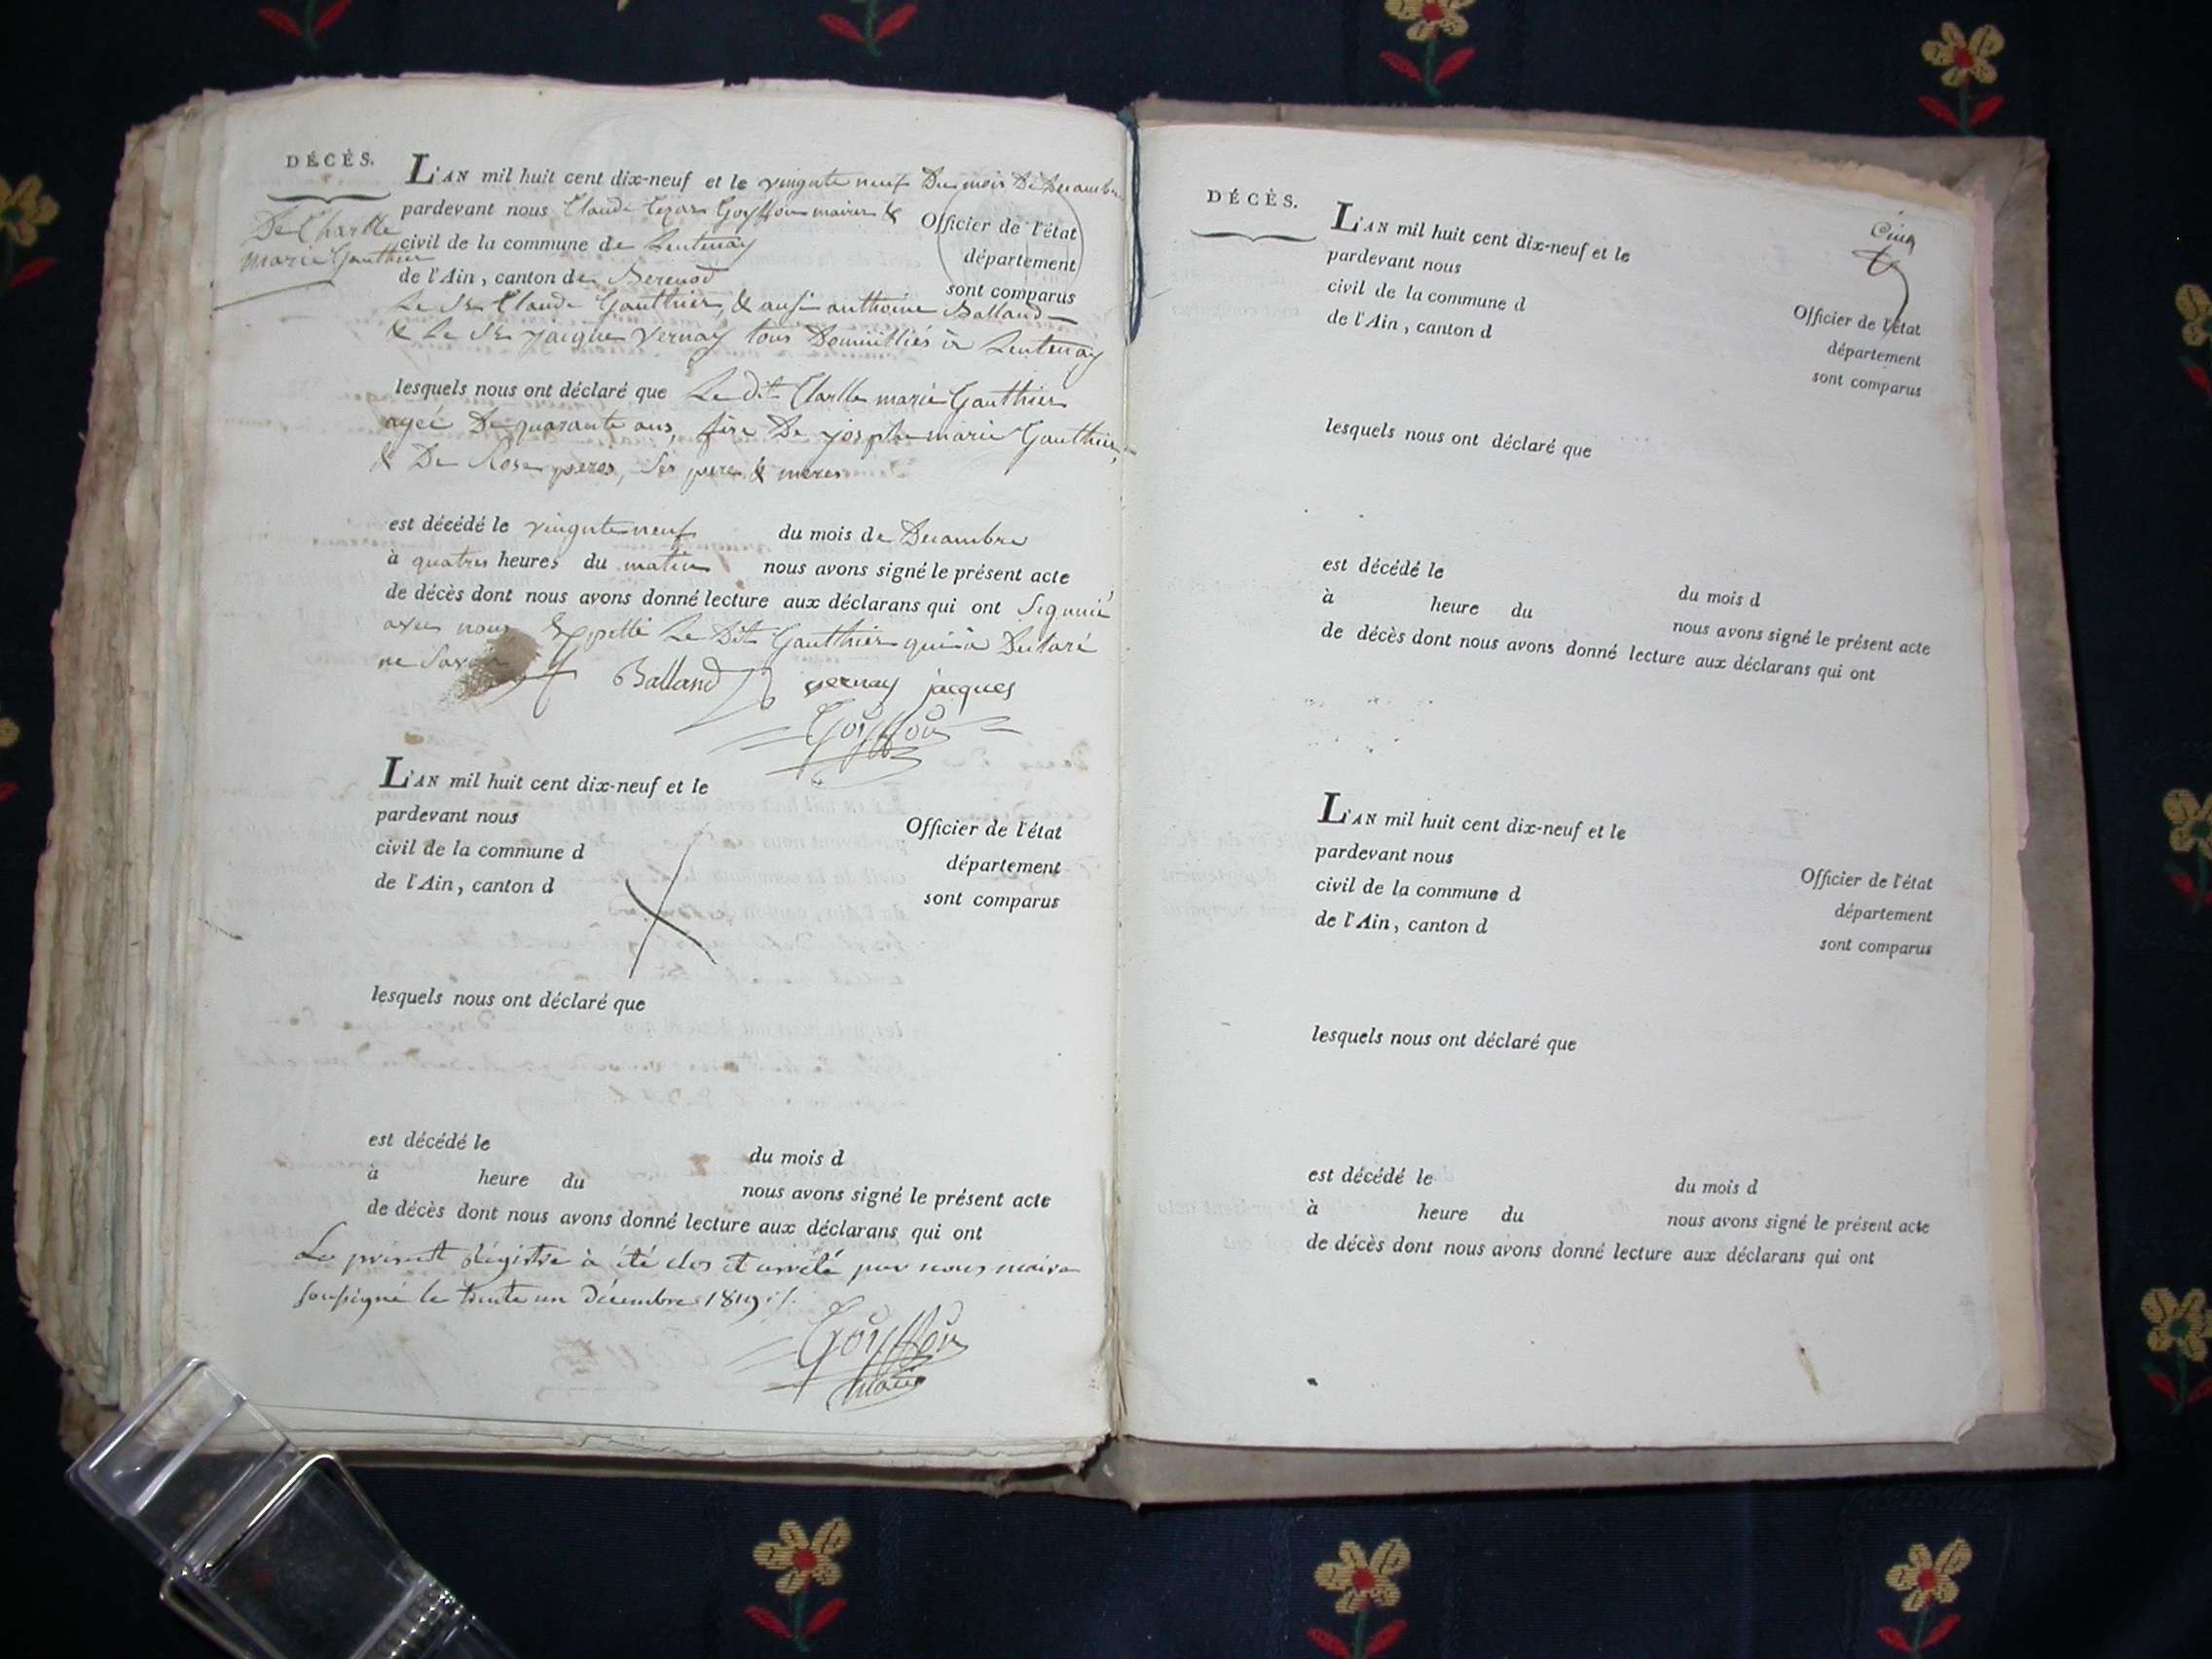 DÉCÈS.
De Charlle
marie Gauthier
L'AN mil huit cent dix-neuf et le vingnte neuf Du mois De Decambre
pardevant nous Claude Cezar Goyffon maire & Officier de l'état
civil de la commune de Lentenay département
de l'Ain, canton de Berenod sont comparus
Le Sr Claude Gauthier, & ausi anthoine Balland
& Le Sr jacque Vernay tous Domicilliés à Lentenay
lesquels nous ont déclaré que Le dit Charlle marie Gauthier
agéé De quarante ans, fire De josphe marie Gauthier,
& De Rose peros, ses pere & meres
est décédé le vingnte neuf du mois de Decambre
à quatres heures du matin nous avons signé le présent acte
de décès dont nous avons donné lecture aux déclarans qui ont Signié
avec nous Expetté Le Dit Gauthier qui a Declaré
ne Savoir
Balland vernay jacques
Goyffon
L'AN mil huit cent dix-neuf et le
pardevant nous Officier de l'état
civil de la commune d département
de l'Ain, canton d sont comparus
lesquels nous ont déclaré que
est décédé le du mois d
à heure du nous avons signé le présent acte
de décès dont nous avons donné lecture aux déclarans qui ont
Le présent régistre à été clos et arrêté par nous maire
soussigné le trente un décembre 1819 ./.
Goyffon
maire
DÉCÈS.
Cinq
L'AN mil huit cent dix-neuf et le
pardevant nous Officier de l'état
civil de la commune d département
de l'Ain, canton d sont comparus
lesquels nous ont déclaré que
est décédé le du mois d
à heure du nous avons signé le présent acte
de décès dont nous avons donné lecture aux déclarans qui ont
L'AN mil huit cent dix-neuf et le
pardevant nous Officier de l'état
civil de la commune d département
de l'Ain, canton d sont comparus
lesquels nous ont déclaré que
est décédé le du mois d
à heure du nous avons signé le présent acte
de décès dont nous avons donné lecture aux déclarans qui ont